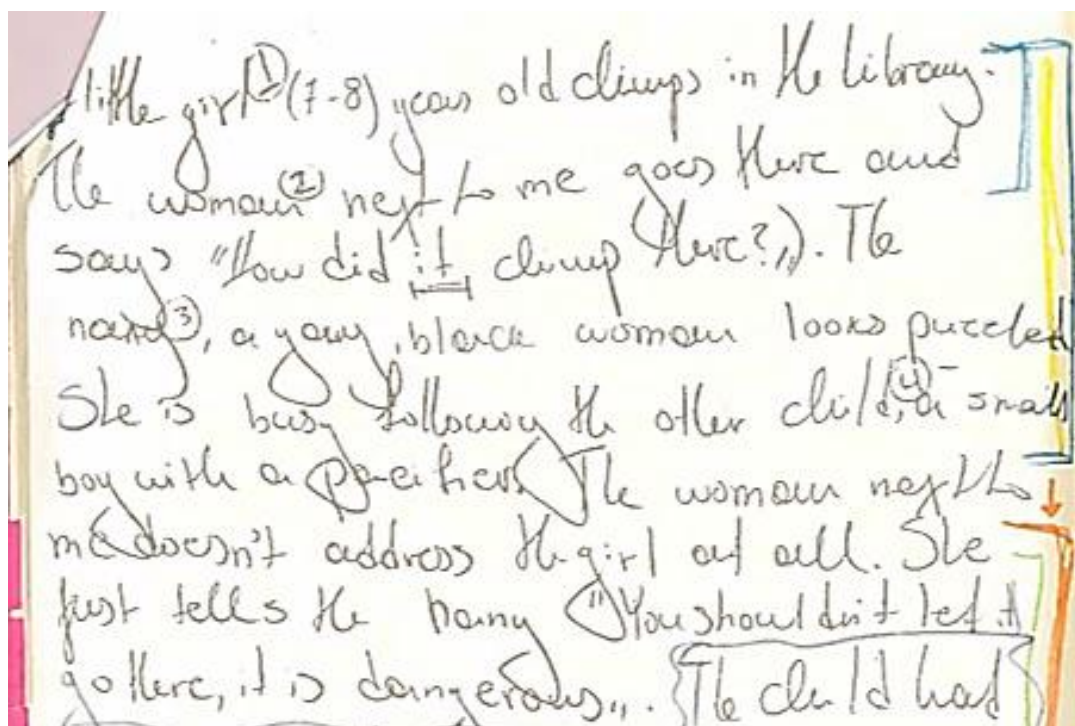 A little girl ① (7-8) years old climps in the library.
The woman ② next to me goes there and
says "How did it climp there?„). The
nanny ③, a young, black woman looks puzzled
She is busy following the other child, ④ a small
boy with a pacifier. The woman next to
me doesn't address the girl at all. She
just tells the nanny "You shouldn't let it
go there, it is dangerous„. The child had